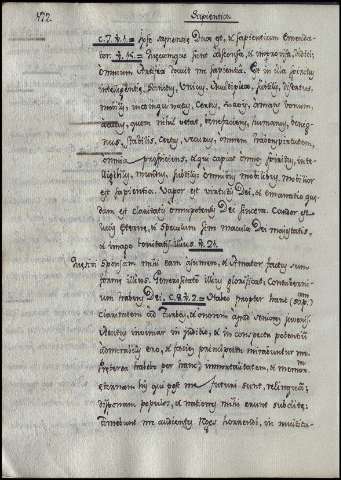 172. Sapientia
c. 7. v. 1. = Ipse sapientiæ Dux est, et sapientium emenda-
tor. v. 15. = Quæcumque sunt absconsa, et improvisa, didici:
omnium artifex docuit me sapientia. Est in illa spiritus
intelligentiæ, Sanctus, Unicus, Multiplex, Subtilis, Disertus,
mobilis, incoinquinatus, Certus, Suavis, amans bonum,
acutus, quem nihil vetat, benefaciens, humanus, benig-
nus, Stabilis, Certus, securus, omnem habens virtutem,
omnia prospiciens, et qui capiat omnes spiritus, inte-
lligibilis, mundus, subtilis: Omnibus mobilibus Mobilior
est sapientia. Vapor est virtutis Dei, et emanatio quæ-
dam est claritatis omnipotentis Dei sincera. Candor est
lucis æternæ, et Speculum sine macula Dei majestatis,
et imago bonitatis illius. v. 26.
Quæsivi Sponsam mihi eam assumere, et Amator factus sum
formæ illius. Generositatem illius glorificat, Contubernium
habens Dei. c. 8. v. 2. = Habeo propter hanc (sap.)
Claritatem ad Turbas, et honorem apud seniores juvenis.
Acutus inveniar in judicio, et in conspectu potentium
admirabilis ero, et facies principum mirabuntur me.
Præterea habebo per hanc immortalitatem, et memoriam
æternam his qui post me futuri sunt, relinquam;
disponam populos, et nationes mihi erunt subditæ;
timebunt me audientes Reges horrendi, in multitu-